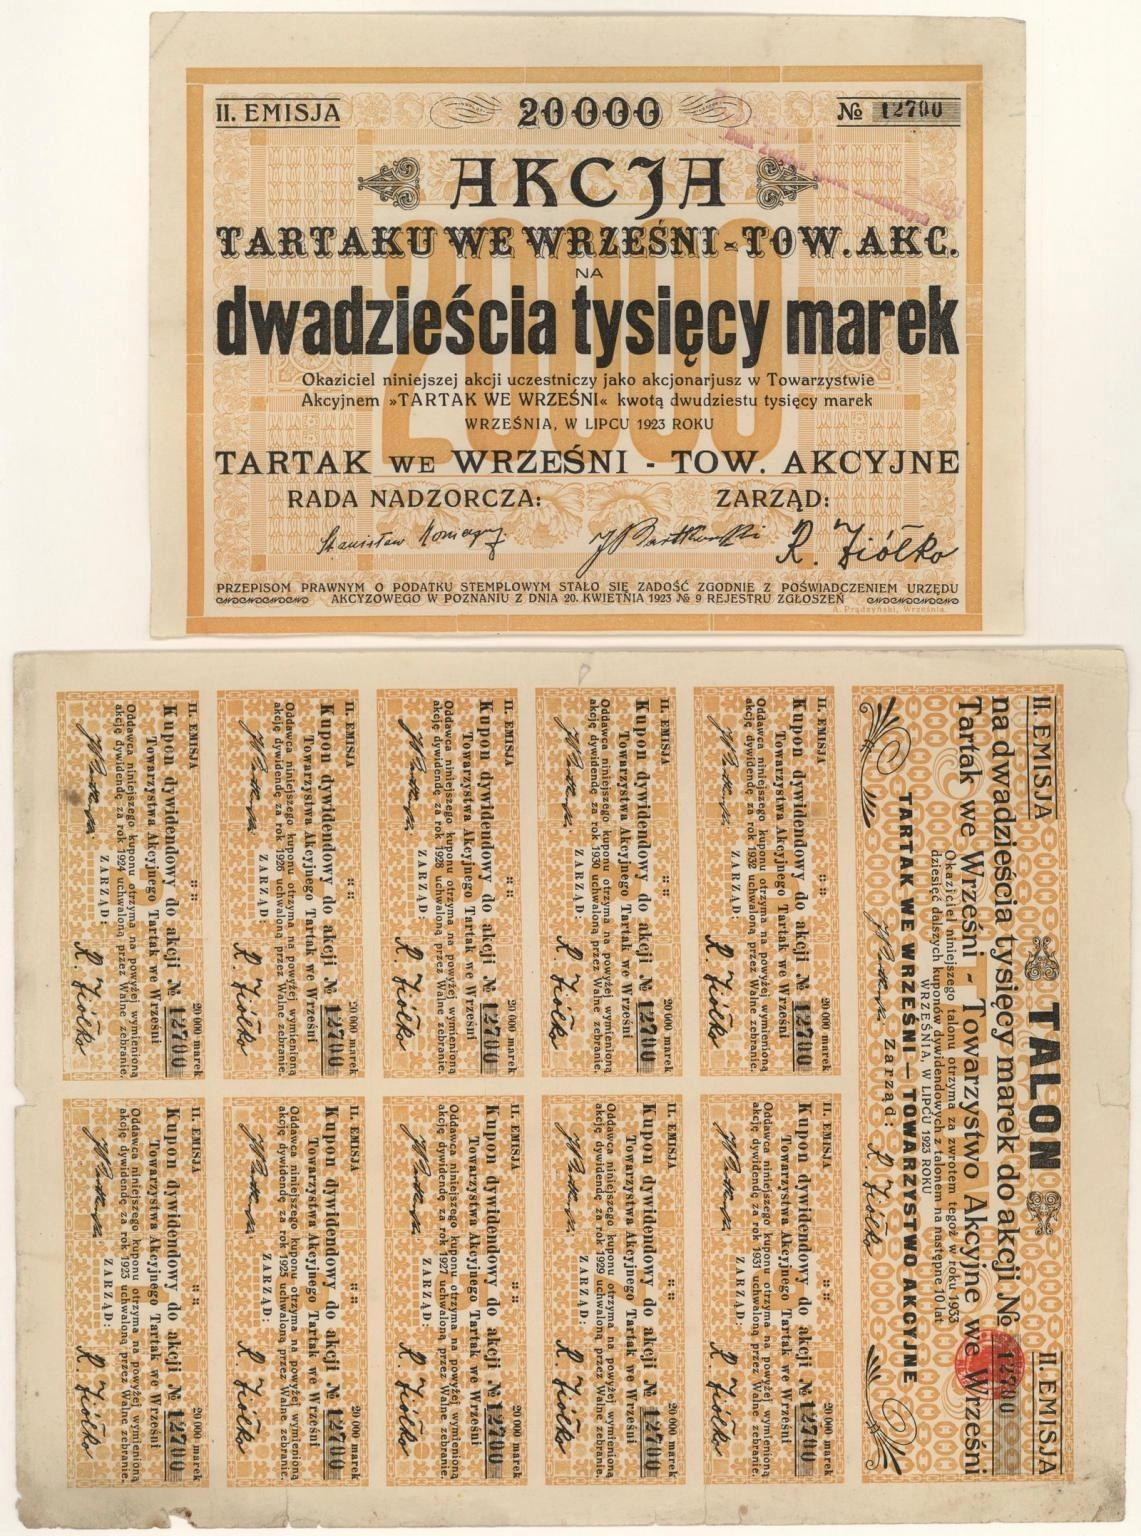 II. EMISJA
20000
№ 12700
AKCJA
TARTAKU WE WRZEŚNI - TOW. AKC.
NA
dwadzieścia tysięcy marek
Okaziciel niniejszej akcji uczestniczy jako akcjonarjusz w Towarzystwie
Akcyjnem »TARTAK WE WRZEŚNI« kwotą dwudziestu tysięcy marek
WRZEŚNIA, W LIPCU 1923 ROKU
TARTAK WE WRZEŚNI - TOW. AKCYJNE
RADA NADZORCZA: ZARZĄD:
Stanisław R. Ziółko
PRZEPISOM PRAWNYM O PODATKU STEMPLOWYM STAŁO SIĘ ZADOŚĆ ZGODNIE Z POŚWIADCZENIEM URZĘDU
AKCYZOWEGO W POZNANIU Z DNIA 20. KWIETNIA 1923 № 9 REJESTRU ZGŁOSZEŃ
A. Prądzyński, Września.
II. EMISJA TALON II. EMISJA
na dwadzieścia tysięcy marek do akcji № 12700
Tartak we Wrześni - Towarzystwo Akcyjne we Wrześni
Okaziciel niniejszego talonu otrzyma za zwrotem tegoż w roku 1933
dziesięć dalszych kuponów dywidendowych z talonem na następne 10 lat
WRZEŚNIA, W LIPCU 1923 ROKU
TARTAK WE WRZEŚNI — TOWARZYSTWO AKCYJNE
Zarząd: R. Ziółko
II. EMISJA :: :: 20 000 marek
Kupon dywidendowy do akcji № 12700
Towarzystwa Akcyjnego Tartak we Wrześni
Oddawca niniejszego kuponu otrzyma na powyżej wymienioną
akcję dywidendę za rok 1932 uchwaloną przez Walne zebranie.
ZARZĄD:
R. Ziółko
II. EMISJA :: :: 20 000 marek
Kupon dywidendowy do akcji № 12700
Towarzystwa Akcyjnego Tartak we Wrześni
Oddawca niniejszego kuponu otrzyma na powyżej wymienioną
akcję dywidendę za rok 1931 uchwaloną przez Walne zebranie.
ZARZĄD:
R. Ziółko
II. EMISJA :: :: 20 000 marek
Kupon dywidendowy do akcji № 12700
Towarzystwa Akcyjnego Tartak we Wrześni
Oddawca niniejszego kuponu otrzyma na powyżej wymienioną
akcję dywidendę za rok 1930 uchwaloną przez Walne zebranie.
ZARZĄD:
R. Ziółko
II. EMISJA :: :: 20 000 marek
Kupon dywidendowy do akcji № 12700
Towarzystwa Akcyjnego Tartak we Wrześni
Oddawca niniejszego kuponu otrzyma na powyżej wymienioną
akcję dywidendę za rok 1929 uchwaloną przez Walne zebranie.
ZARZĄD:
R. Ziółko
II. EMISJA :: :: 20 000 marek
Kupon dywidendowy do akcji № 12700
Towarzystwa Akcyjnego Tartak we Wrześni
Oddawca niniejszego kuponu otrzyma na powyżej wymienioną
akcję dywidendę za rok 1928 uchwaloną przez Walne zebranie.
ZARZĄD:
R. Ziółko
II. EMISJA :: :: 20 000 marek
Kupon dywidendowy do akcji № 12700
Towarzystwa Akcyjnego Tartak we Wrześni
Oddawca niniejszego kuponu otrzyma na powyżej wymienioną
akcję dywidendę za rok 1927 uchwaloną przez Walne zebranie.
ZARZĄD:
R. Ziółko
II. EMISJA :: :: 20 000 marek
Kupon dywidendowy do akcji № 12700
Towarzystwa Akcyjnego Tartak we Wrześni
Oddawca niniejszego kuponu otrzyma na powyżej wymienioną
akcję dywidendę za rok 1926 uchwaloną przez Walne zebranie.
ZARZĄD:
R. Ziółko
II. EMISJA :: :: 20 000 marek
Kupon dywidendowy do akcji № 12700
Towarzystwa Akcyjnego Tartak we Wrześni
Oddawca niniejszego kuponu otrzyma na powyżej wymienioną
akcję dywidendę za rok 1925 uchwaloną przez Walne zebranie.
ZARZĄD:
R. Ziółko
II. EMISJA :: :: 20 000 marek
Kupon dywidendowy do akcji № 12700
Towarzystwa Akcyjnego Tartak we Wrześni
Oddawca niniejszego kuponu otrzyma na powyżej wymienioną
akcję dywidendę za rok 1924 uchwaloną przez Walne zebranie.
ZARZĄD:
R. Ziółko
II. EMISJA :: :: 20 000 marek
Kupon dywidendowy do akcji № 12700
Towarzystwa Akcyjnego Tartak we Wrześni
Oddawca niniejszego kuponu otrzyma na powyżej wymienioną
akcję dywidendę za rok 1923 uchwaloną przez Walne zebranie.
ZARZĄD:
R. Ziółko